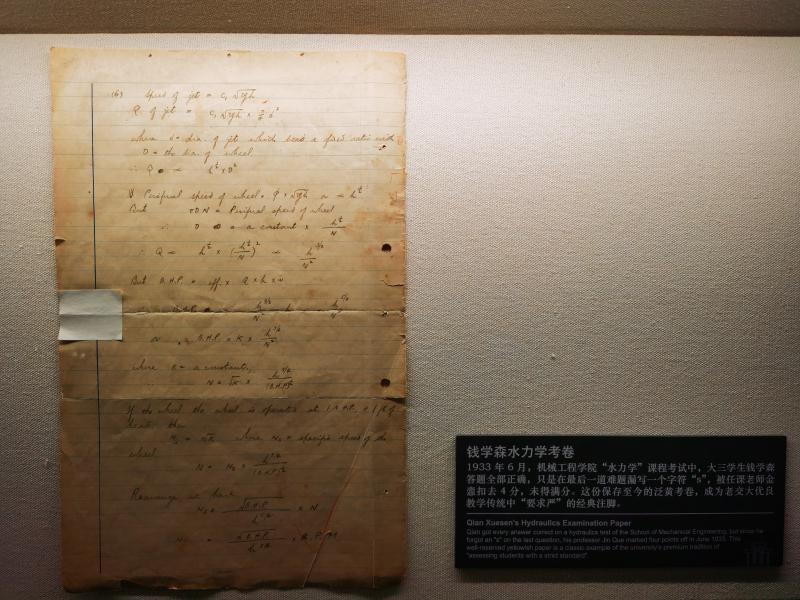 (6) Speed of jet = C₁ √2gh
Q of jet = C₁ √2gh × π/4 d²
where d = dia. of jet which bears a fixed ratio with
D = the dia. of wheel.
∴ Q ∝ h^½ × D²
Peripheral speed of wheel = φ × √2gh ∝ h^½
But π D N = Peripheral speed of wheel
∴ D = a constant × h^½/N
∴ Q ∝ h^½ × (h^½/N)² ∝ h^3/2/N²
But B.H.P. = eff. × Q × h × w
where K = a constant,
N = √K × h^5/4/(B.H.P.)^½
If the wheel is operated at 1 B.H.P. & 1 ft of
then
where Ns = specific speed of the
wheel
N = Ns × h^5/4/(B.H.P.)^½
Rearrange we have
钱学森水力学考卷
1933 年 6 月，机械工程学院“水力学”课程考试中，大三学生钱学森
答题全部正确，只是在最后一道难题漏写一个字符“s”，被任课老师金
悫扣去 4 分，未得满分。这份保存至今的泛黄考卷，成为老交大优良
教学传统中“要求严”的经典注脚。
Qian Xuesen's Hydraulics Examination Paper
Qian got every answer correct on a hydraulics test of the School of Mechanical Engineering, but since he
forgot an "s" on the last question, his professor Jin Que marked four points off in June 1933. This
well-reserved yellowish paper is a classic example of the university's premium tradition of
"assessing students with a strict standard".